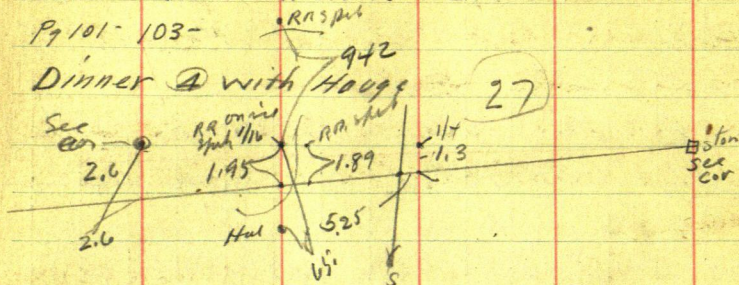 Pg 101-103-
RR Spk
942
Dinner ④ with Houge
27
See cor
RR Spk 1/16
RR Spk
1/4
1.3
ston
See cor
2.6
1.95
1.89
2.6
Hul
5.25
65.
S